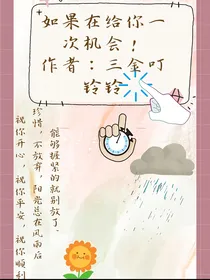 如果在给你一
次机会！
作者：三金叮
铃铃
能够握紧的就别放了，
珍惜，不放弃，阳光总在风雨后
祝你开心，祝你平安，祝你顺利